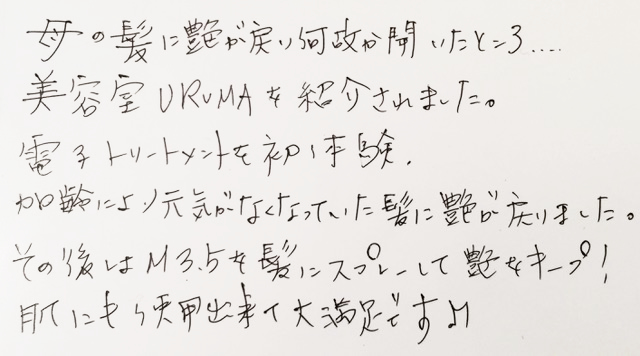 母の髪に艶が戻り何故か聞いたところ....
美容室URUMAを紹介されました。
電子トリートメントを初体験.
加齢により元気がなくなっていた髪に艶が戻りました。
その後はM3.5を髪にスプレーして艶をキープ!
肌にも使用出来て大満足です♪